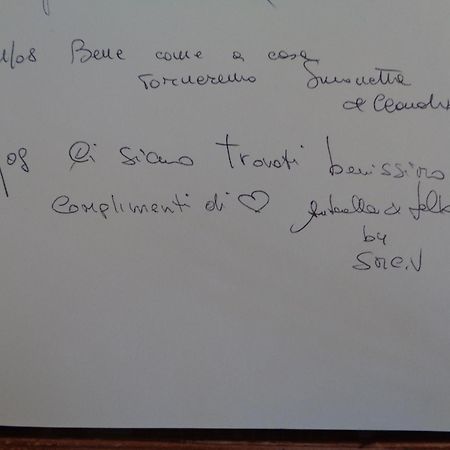 /08 Bene come a casa
Torneremo Simonetta
& Claudio
/08 Ci siamo Trovati benissimo
Complimenti di ♡ Antonella &
by